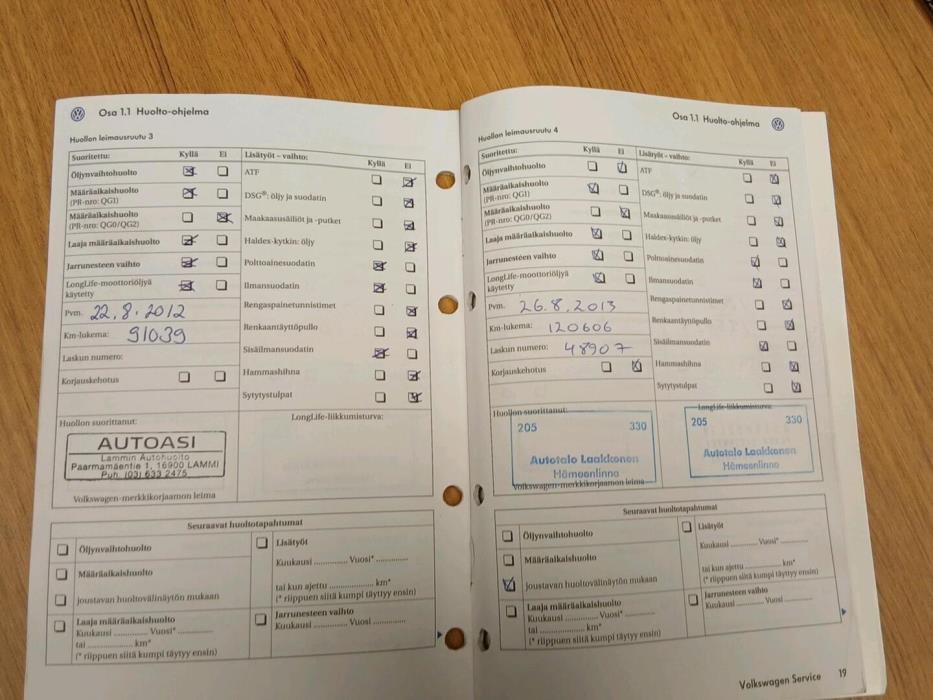 Osa 1.1 Huolto-ohjelma
Huollon leimausruutu 3
Suoritettu: Kyllä Ei
Öljynvaihtohuolto
Määräaikaishuolto
(PR-nro: QG1)
Määräaikaishuolto
(PR-nro: QG0/QG2)
Laaja määräaikaishuolto
Jarrunesteen vaihto
LongLife-moottoriöljyä
käytetty
Pvm. 22.8.2012
Km-lukema: 91039
Laskun numero:
Korjauskehotus
Lisätyöt - vaihto: Kyllä Ei
ATF
DSG®: öljy ja suodatin
Maakaasusäiliöt ja -putket
Haldex-kytkin: öljy
Polttoainesuodatin
Ilmansuodatin
Rengaspainetunnistimet
Renkaantäyttöpullo
Sisäilmansuodatin
Hammashihna
Sytytystulpat
Huollon suorittanut:
AUTOASI
Lammin Autohuolto
Paarmamäentie 1, 16900 LAMMI
Puh. (03) 633 2475
Volkswagen-merkkikorjaamon leima
LongLife-liikkumisturva:
Seuraavat huoltotapahtumat
Öljynvaihtohuolto
Määräaikaishuolto
joustavan huoltovälinäytön mukaan
Laaja määräaikaishuolto
Kuukausi ............. Vuosi* .............
tai ................ km*
(* riippuen siitä kumpi täytyy ensin)
Lisätyöt
Kuukausi ............. Vuosi* .............
tai kun ajettu .................... km*
(* riippuen siitä kumpi täytyy ensin)
Jarrunesteen vaihto
Kuukausi ............. Vuosi .............
Osa 1.1 Huolto-ohjelma
Huollon leimausruutu 4
Suoritettu: Kyllä Ei
Öljynvaihtohuolto
Määräaikaishuolto
(PR-nro: QG1)
Määräaikaishuolto
(PR-nro: QG0/QG2)
Laaja määräaikaishuolto
Jarrunesteen vaihto
LongLife-moottoriöljyä
käytetty
Pvm. 26.8.2013
Km-lukema: 120606
Laskun numero: 48907
Korjauskehotus
Lisätyöt - vaihto: Kyllä Ei
ATF
DSG®: öljy ja suodatin
Maakaasusäiliöt ja -putket
Haldex-kytkin: öljy
Polttoainesuodatin
Ilmansuodatin
Rengaspainetunnistimet
Renkaantäyttöpullo
Sisäilmansuodatin
Hammashihna
Sytytystulpat
Huollon suorittanut:
205 330
Autotalo Laakkonen
Hämeenlinna
Volkswagen-merkkikorjaamon leima
LongLife-liikkumisturva:
205 330
Autotalo Laakkonen
Hämeenlinna
Seuraavat huoltotapahtumat
Öljynvaihtohuolto
Määräaikaishuolto
joustavan huoltovälinäytön mukaan
Laaja määräaikaishuolto
Kuukausi ............. Vuosi* .............
tai ................ km*
(* riippuen siitä kumpi täytyy ensin)
Lisätyöt
Kuukausi ............. Vuosi* .............
tai kun ajettu .................... km*
(* riippuen siitä kumpi täytyy ensin)
Jarrunesteen vaihto
Kuukausi ............. Vuosi .............
Volkswagen Service 19